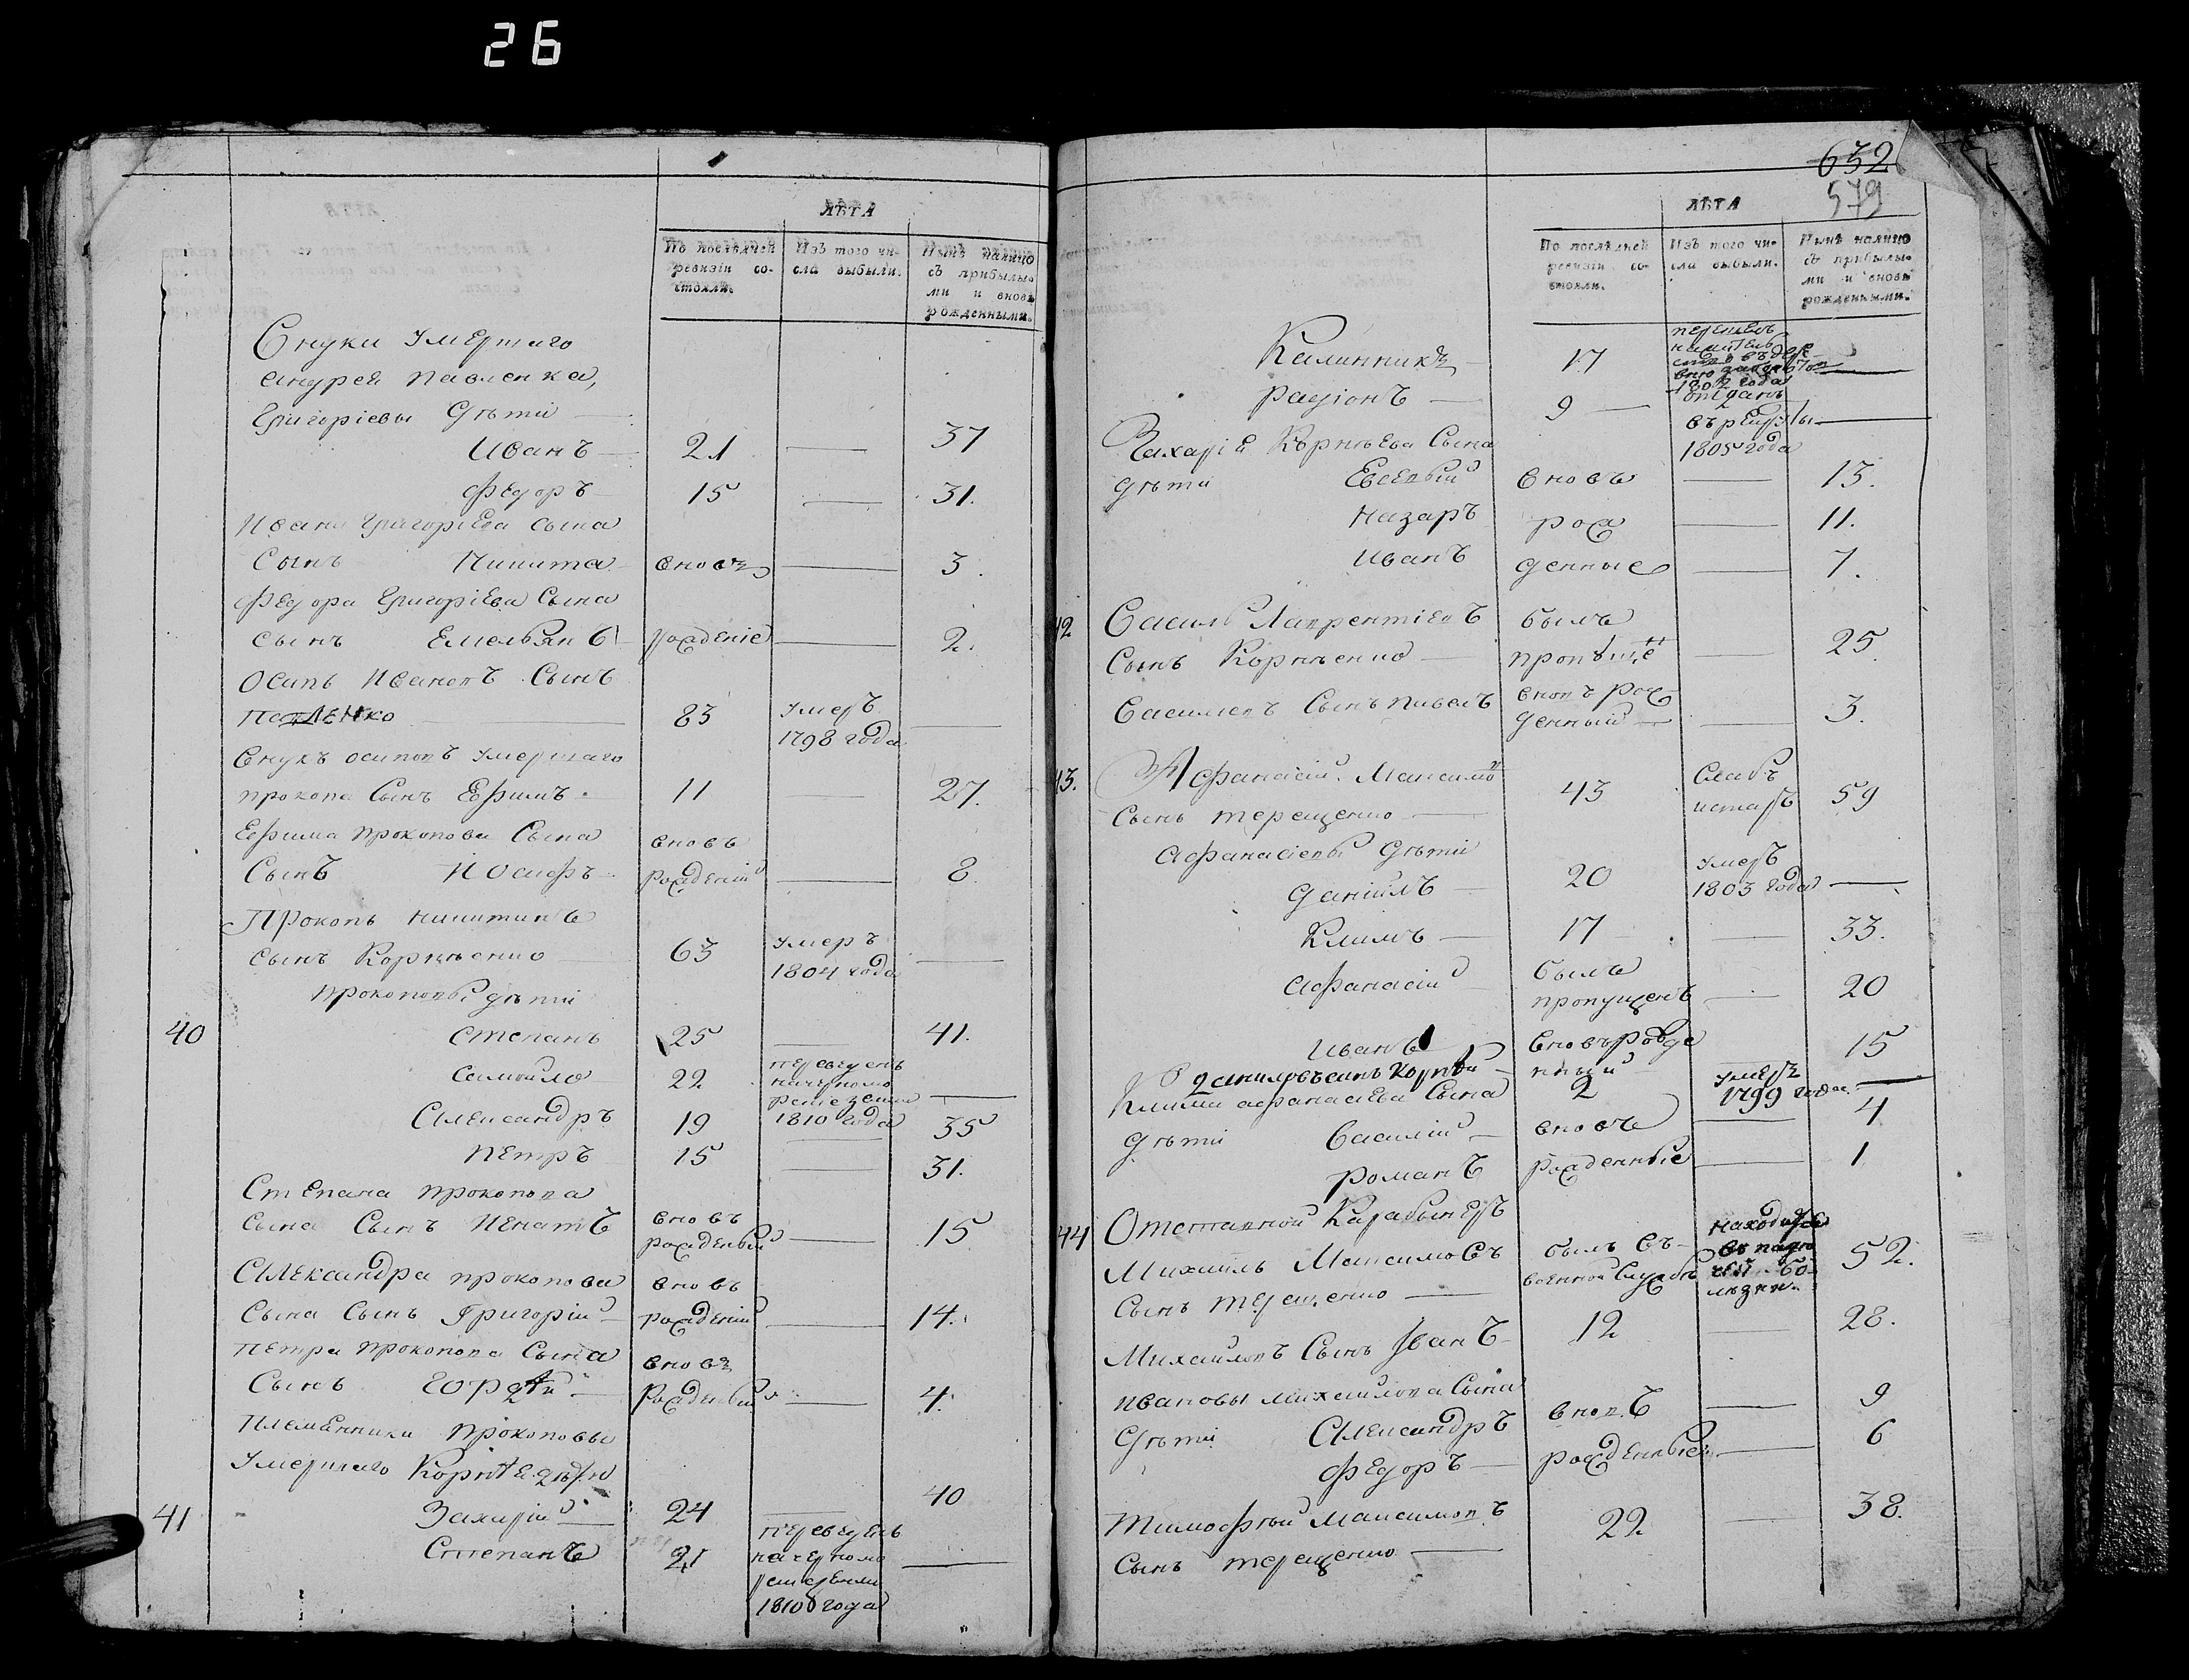 26
ЛѢТА
По послѣдней ревизіи состояли.
Изъ того числа выбыли.
Нынѣ налицо съ прибылыми и вновь рожденными.
Внуки умершаго
андрея павленка,
григоріевы дѣти
Иванъ 21 — 37
федоръ 15 — 31.
Ивана григоріева сына
Сынъ Никита вновь — 3.
федора григоріева Сына
сынъ Емельянъ рожденіе — 2.
Осипъ Ивановъ Сынъ
павленко 83 умеръ 1798 года —
Внукъ осиповъ умершаго
прокопа Сынъ Ефимъ 11 — 27.
Ефима прокопова Сына вновь
Сынъ Иосифъ рожденій — 8.
Прокопъ никитинъ
сынъ Корнѣенко 63 умеръ 1804 года —
прокоповы дѣти
40 степанъ 25 — 41.
самойло 22 переведенъ 1810 года —
Александръ 19 — 35
петръ 15 — 31.
Степана прокопова
сына Сынъ Игнатъ вновь рожденый — 15
Александра прокопова вновь
Сына Сынъ Григорій рожденій — 14.
петра прокопова Сына вновь
Сынъ гордѣй рожденый — 4.
племянники прокоповы
умершаго Корнѣя дѣти
41 Захарій 24 — 40
Степанъ 21 переведенъ 1810 года —
632
579
ЛѢТА
По послѣдней ревизіи состояли.
Изъ того числа выбыли.
Нынѣ налицо съ прибылыми и вновь рожденными.
Калинникъ 17 1802 года —
радіонъ 9 отданъ въ рекруты 1805 года —
Захарія Корнѣева Сына
дѣти Евсевій вновь — 13.
назаръ рож — 11.
иванъ денные — 7.
42 Василь Лаврентіевъ былъ
Сынъ Корнѣенко пропущенъ — 25.
Васильевъ Сынъ павелъ вновь рожденный — 3.
43. Афанасій Максимовъ
Сынъ терещенко 43 Слабъ и старъ 59
афанасіевы дѣти
даніилъ 20 умеръ 1803 года —
Климъ 17 — 33.
афанасій былъ пропущенъ — 20
иванъ вновь рожденный — 15
даниловъ сынъ Корнѣй 2 умеръ 1799 года —
Клима афанасіева Сына
дѣти василій вновь — 4
романъ рожденные — 1.
44 Отставной Карабинеръ
Михаилъ Максимовъ былъ въ
Сынъ терещенко военной Службѣ находится въ падучей болѣзни. 52.
Михайловъ Сынъ Іванъ 12 — 28.
ивановы михайлова Сына
дѣти Александръ вновь — 9
федоръ рожденные — 6
тимофѣй максимовъ
Сынъ терещенко 22. — 38.